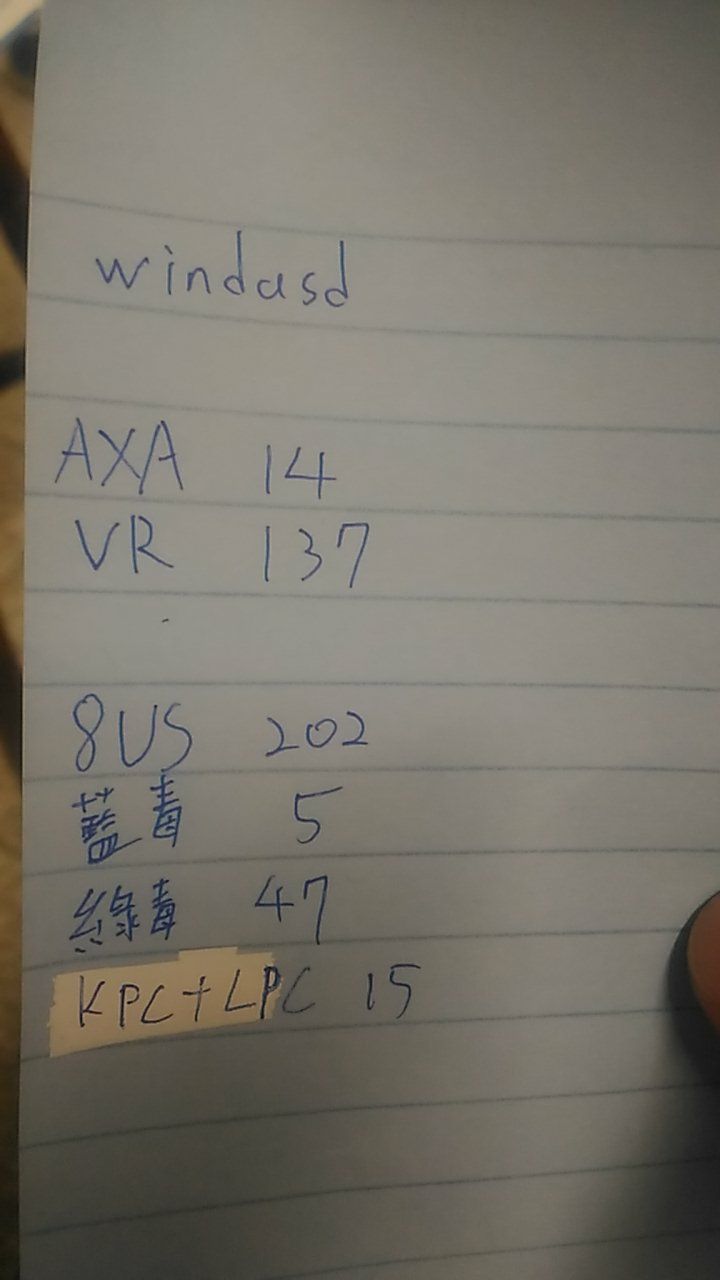 windasd
AXA 14
VR 137
8US 202
藍毒 5
綠毒 47
KPC+LPC 15